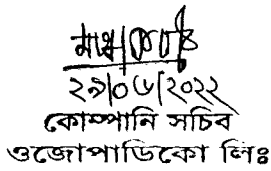 ২৯/০৬/২০২২
কোম্পানি সচিব
ওজোপাডিকো লিঃ